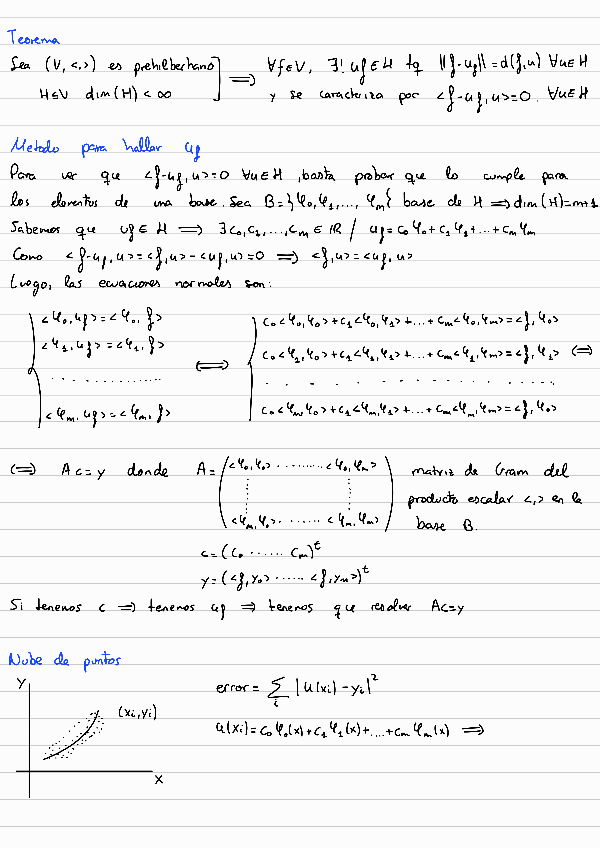 Teorema
Sea (V, <,>) es prehilbertiano ] ⟹ ∀f∈V, ∃! uf∈H tq ||f-uf||=d(f,u) ∀u∈H
H≤V dim(H)<∞ y se caracteriza por <f-uf,u>=0. ∀u∈H
Metodo para hallar uf
Para ver que <f-uf,u>=0 ∀u∈H, basta probar que lo cumple para
los elementos de una base. Sea B={φ0,φ1,...,φm} base de H ⟹ dim(H)=m+1
Sabemos que uf∈H ⟹ ∃c0,c1,...,cm∈ℝ / uf=c0φ0+c1φ1+...+cmφm
Como <f-uf,u>=<f,u>-<uf,u>=0 ⟹ <f,u>=<uf,u>
Luego, las ecuaciones normales son:
<φ0,uf>=<φ0,f> c0<φ0,φ0>+c1<φ0,φ1>+...+cm<φ0,φm>=<f,φ0>
<φ1,uf>=<φ1,f> ⟺ c0<φ1,φ0>+c1<φ1,φ1>+...+cm<φ1,φm>=<f,φ1> ⟺
.............. ..............
<φm,uf>=<φm,f> c0<φm,φ0>+c1<φm,φ1>+...+cm<φm,φm>=<f,φ0>
⟺ Ac=y donde A=(<φ0,φ0> ......... <φ0,φm> matriz de Gram del
producto escalar <,> en la
<φm,φ0> ....... <φm,φm>) base B.
c=(c0 ...... cm)^t
y=(<f,y0> ...... <f,ym>)^t
Si tenemos c ⟹ tenemos uf ⟹ tenemos que resolver Ac=y
Nube de puntos
y
(xi,yi)
x
error= ∑i |u(xi)-yi|²
u(xi)=c0φ0(x)+c1φ1(x)+....+cmφm(x) ⟹